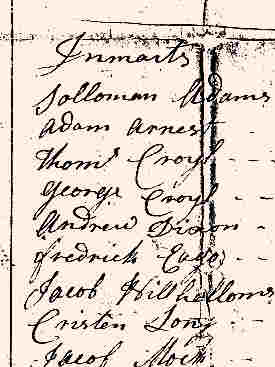 Inmaits
Solloman Adams
Adam Arnest
Thoms Croyl
George Croyl
Andrew Dixon
Fredrick Eago
Jacob Hillhelloms
Cristen Long
Jacob Mock